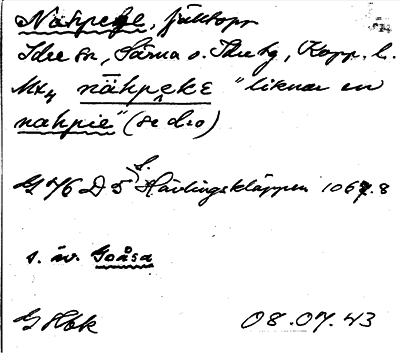 Nåhpege, fjälltopp
Idre sn, Särna o. Idre tg, Kopp. l.
Mx4 nåhpeke "liknar en
nahpie" (se d:o)
G 476 D 5 s. Hävlingekläppen 1067.8
s. äv. Goåsa
G Hbk 08.07.43